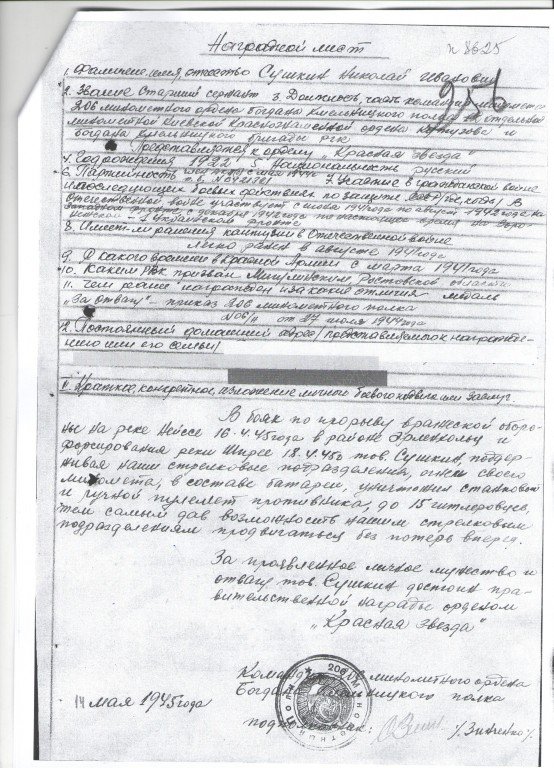 Наградной лист
п 8625
1. Фамилия, имя, отчество Сушкин Николай Иванович
2. Звание Старший сержант 3. Должность, часть командир миномета
206 минометного ордена Богдана Хмельницкого полка отдельной
минометной Киевской Краснознаменной ордена Кутузова и
Богдана Хмельницкого бригады РГК
Представляется к ордену „Красная Звезда"
4. Год рождения 1922 5. Национальность русский
6. Партийность 7. Участие в гражданской войне
и последующих боевых действиях по защите СССР (где, когда) В
Отечественной войне участвует с июля 1941 года по август 1942 года на
с декабря 1942 года по настоящее время
2 Украинской
8. Имеет ли ранения и контузии в Отечественной войне
легко ранен в августе 1941 года
9. С какого времени в Красной Армии с марта 1941 года
10. Каким РВК призван Мигулинским Ростовской области
11. Чем ранее награжден и за какие отличия медаль
„За отвагу" – приказ 206 минометного полка
от 27 июля 1944 года
12. Постоянный домашний адрес представляемого к награжде-
нию или его семьи
Краткое, конкретное, изложение личного боевого подвига или заслуг
В боях по прорыву вражеской оборо-
ны на реке Нейссе 16.4.45 года в районе и
форсирования реки Шпрее 18.4.45г тов. Сушкин, поддер-
живая наши стрелковые подразделения, огнем своего
миномета, в составе батареи, уничтожил станковый
и ручной пулемет противника, до 15 гитлеровцев,
тем самым дав возможность нашим стрелковым
подразделениям продвигаться без потерь вперед.
За проявленное личное мужество и
отвагу тов. Сушкин достоин пра-
вительственной награды орденом
„Красная Звезда"
минометного ордена
Богдана Хмельницкого полка
14 мая 1945 года
/Зинченко/